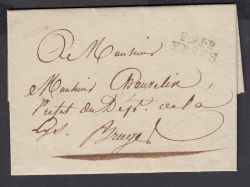 P.91.P.
YPRES
A Monsieur
Monsieur
Préfet du Dépt. de la
Lys.
Bruges